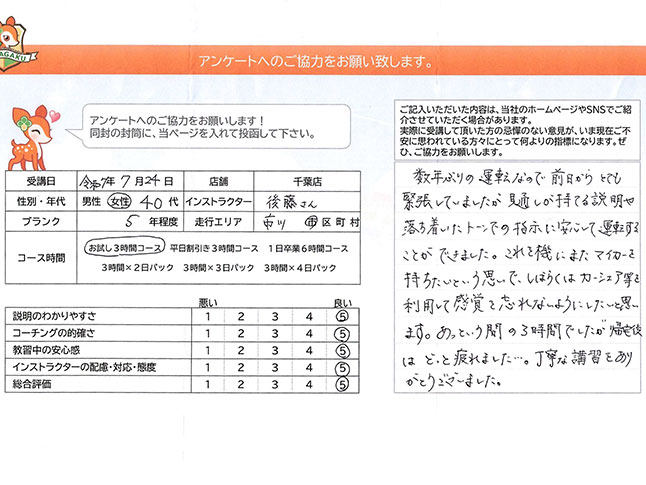 AGAKU
アンケートへのご協力をお願い致します。
アンケートへのご協力をお願いします！
同封の封筒に、当ページを入れて投函して下さい。
受講日 令和7年7月24日 店舗 千葉店
性別・年代 男性 女性 40代 インストラクター 後藤さん
ブランク 5年程度 走行エリア 市川 市区町村
コース時間 お試し3時間コース 平日割引き3時間コース 1日卒業6時間コース
3時間×2日パック 3時間×3日パック 3時間×4日パック
悪い 良い
説明のわかりやすさ 1 2 3 4 5
コーチングの的確さ 1 2 3 4 5
教習中の安心感 1 2 3 4 5
インストラクターの配慮・対応・態度 1 2 3 4 5
総合評価 1 2 3 4 5
ご記入いただいた内容は、当社のホームページやSNSでご紹
介させていただく場合があります。
実際に受講して頂いた方の忌憚のない意見が、いま現在ご不
安に思われている方々にとって何よりの指標になります。ぜ
ひ、ご協力をお願いします。
数年ぶりの運転なので前日からとても
緊張していましたが見通しが持てる説明や
落ち着いたトーンでの指示に安心して運転する
ことができました。これを機にまたマイカーを
持ちたいという思いで、しばらくはカーシェア等を
利用して感覚を忘れないようにしたいと思い
ます。あっという間の3時間でしたが帰宅後
は どっと疲れました…。丁寧な講習をあり
がとうございました。